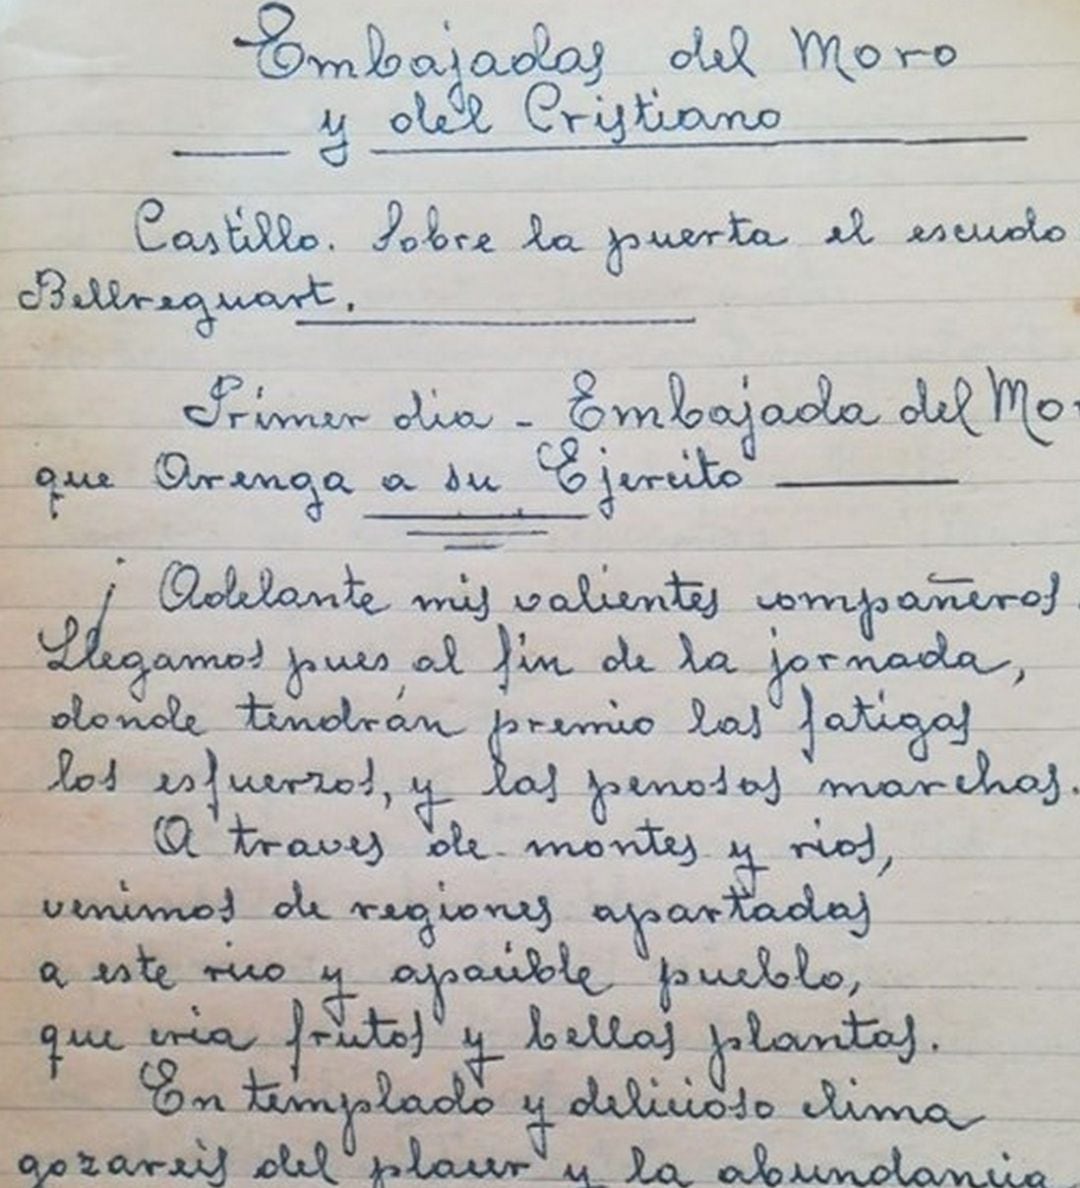 Embajadas del Moro
y del Cristiano
Castillo. Sobre la puerta el escudo
Bellreguart.
Primer dia - Embajada del Mo
que Arenga a su Ejercito
¡ Adelante mis valientes compañeros.
Llegamos pues al fin de la jornada,
donde tendrán premio las fatigas
los esfuerzos, y las penosas marchas.
A traves de montes y rios,
venimos de regiones apartadas
a este rico y apacible pueblo,
que cria frutos y bellas plantas.
En templado y delicioso clima
gozareis del placer y la abundancia